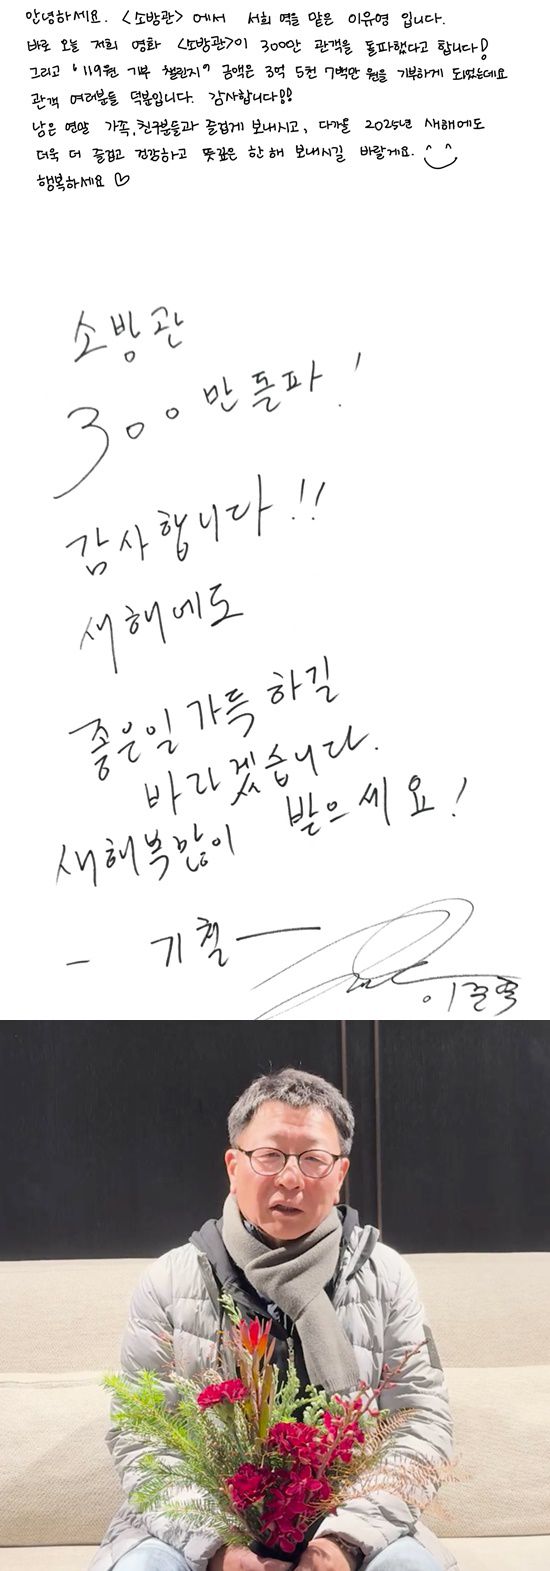 안녕하세요. <소방관> 에서 서희 역을 맡은 이유영 입니다.
바로 오늘 저희 영화 <소방관>이 300만 관객을 돌파했다고 합니다!
그리고 "119원 기부 챌린지" 금액은 3억 5천 7백만 원을 기부하게 되었는데요
관객 여러분들 덕분입니다. 감사합니다!!
남은 연말 가족, 친구분들과 즐겁게 보내시고, 다가올 2025년 새해에도
더욱 더 즐겁고 건강하고 뜻깊은 한 해 보내시길 바랄게요. ^^
행복하세요 ♡
소방관
300만 돌파!
감사합니다!!
새해에도
좋은일 가득 하길
바라겠습니다.
새해복많이 받으세요!
- 기철 -
이준혁